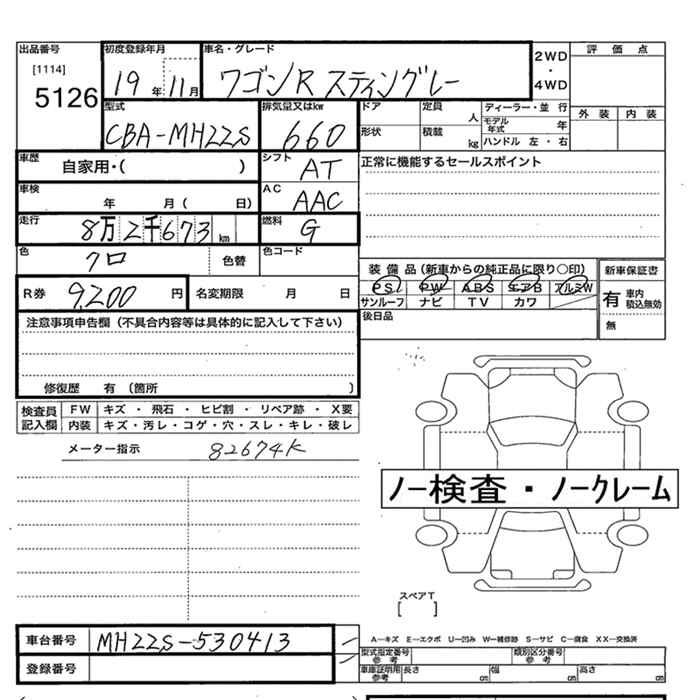 出品番号 初度登録年月 車名・グレード 2WD ・ 4WD 評価点
[1114] 5126 19年 11月 ワゴンR スティングレー
外装 内装
型式 排気量又はkw ドア 定員 人 ディーラー・並 行
モデル年式 年
CBA-MH22S 660 形状 積載 kg ハンドル 左・右
車歴 自家用・( ) シフト AT 正常に機能するセールスポイント
車検 年 月( 日) AC AAC
走行 8万2千673km 燃料 G
色 クロ 色替 色コード 装備品(新車からの純正品に限り〇印) 新車保証書
PS PW ABS エアB アルミW 有 車内積込無効
R券 9,200円 名変期限 月 日 サンルーフ ナビ TV カワ 無
注意事項申告欄(不具合内容等は具体的に記入して下さい) 後日品
修復歴 有 (箇所 )
検査員記入欄 FW キズ・飛石・ヒビ割・リペア跡・X要
内装 キズ・汚レ・コゲ・穴・スレ・キレ・破レ
メーター指示 82674K
ノー検査・ノークレーム
スペアT
[ ]
車台番号 MH22S-530413 A―キズ E―エクボ U―凹み W―補修跡 S―サビ C―腐食 XX―交換済
型式指定番号 参考 類別区分番号 参考
登録番号 車庫証明用 参考 長さ cm 幅 cm 高さ cm